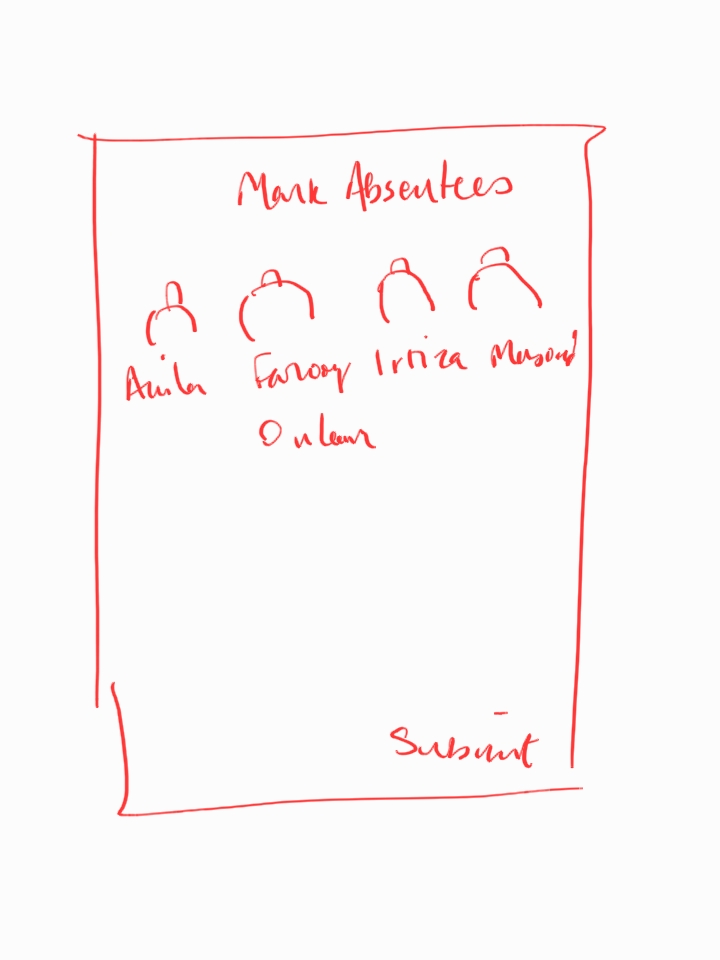 Mark Absentees
Anila Farooq Irtiza Masood
Submit